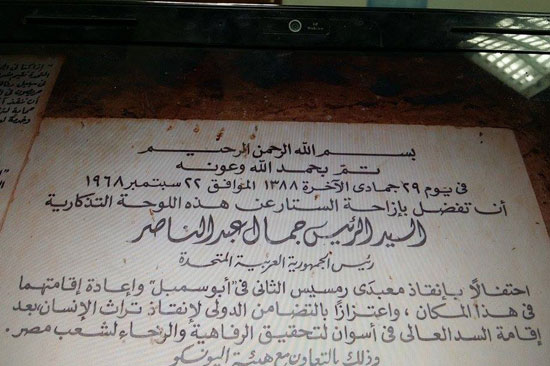 بسم الله الرحمن الرحيم
تم بحمد الله وعونه
في يوم ٢٩ جمادى الآخرة ١٣٨٨ الموافق ٢٢ سبتمبر ١٩٦٨
أن تفضل بإزاحة الستار عن هذه اللوحة التذكارية
السيد الرئيس جمال عبد الناصر
رئيس الجمهورية العربية المتحدة
احتفالاً بإنقاذ معبدى رمسيس الثانى فى "أبو سمبل" وإعادة إقامتهما
فى هذا المكان، واعتزازًا بالتضامن الدولى لإنقاذ تراث الإنسان، بعد
إقامة السد العالى فى أسوان لتحقيق الرفاهية والرخاء لشعب مصر.
وذلك بالتعاون مع هيئة اليونسكو